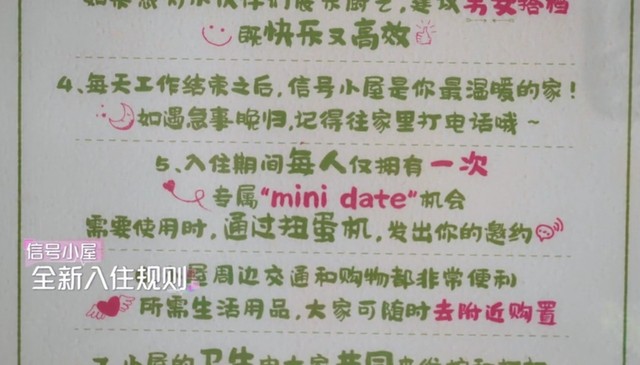 男女搭档
既快乐又高效
4、每天工作结束之后,信号小屋是你最温暖的家!
如遇急事晚归,记得往家里打电话哦~
5、入住期间每人仅拥有一次
专属"mini date"机会
需要使用时,通过扭蛋机,发出你的邀约
信号小屋
全新入住规则
屋周边交通和购物都非常便利
所需生活用品,大家可随时去附近购置